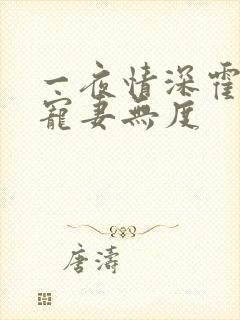 一夜情深霍
寵妻無度
唐濤